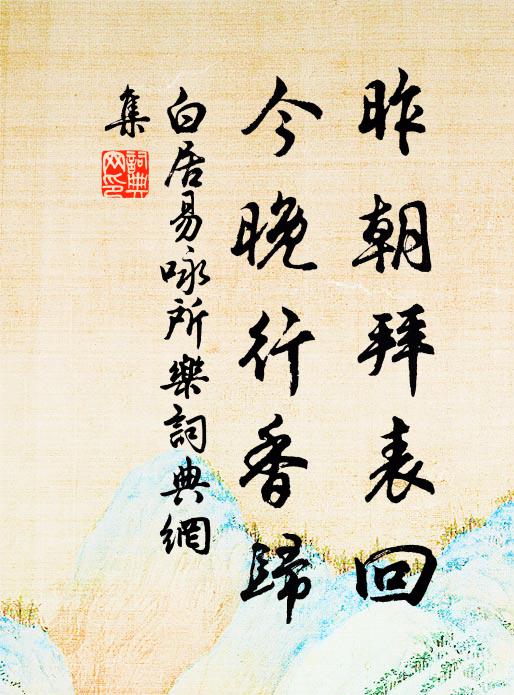 昨朝拜表回
今晚行香歸
白居易咏所樂詞典網
集
詞典網印